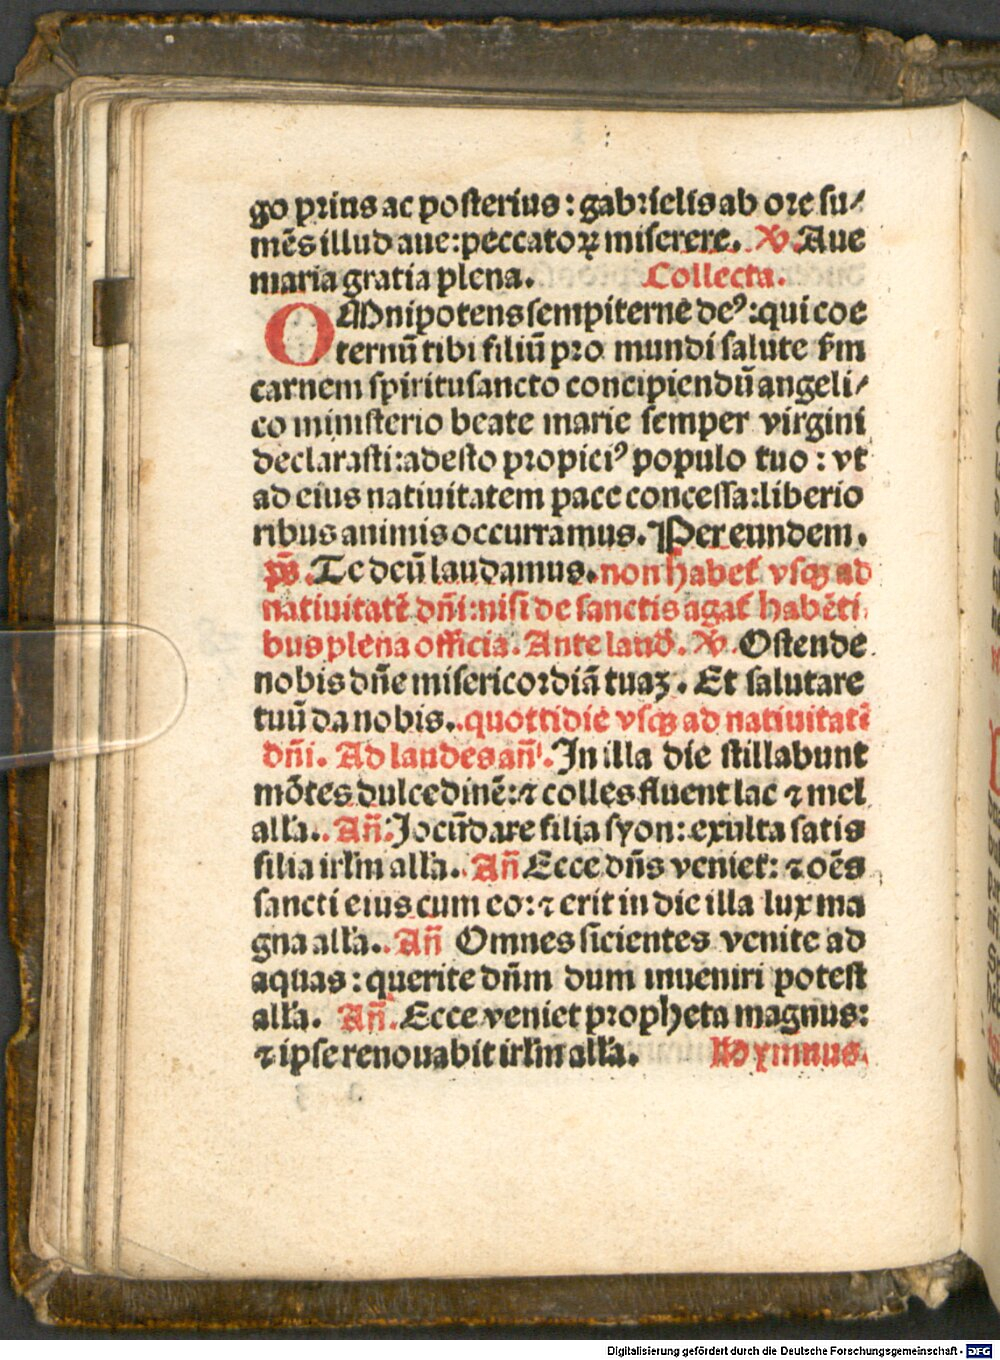 go prius ac posterius : gabrielis ab ore su⸗
mēs illud aue : peccatoꝝ miserere. ℣. Aue
maria gratia plena. Collecta.
OMnipotens sempiterne deꝰ : qui coe
ternū tibi filiū pro mundi salute ẜm
carnem spiritusancto concipiendū angeli⸗
co ministerio beate marie semper virgini
declarasti : adesto propiciꝰ populo tuo : vt
ad eius natiuitatem pace concessa : liberio
ribus animis occurramus. Per eundem.
p̄s. Te deū laudamus. non habet᷑ vsqꝫ ad
natiuitatē dn̄i : nisi de sanctis agat᷑ habēti
bus plena officia. Ante laud̄. ℣. Ostende
nobis dn̄e misericordiā tuaꝫ. Et salutare
tuū da nobis. quottidie vsqꝫ ad natiuitatē
dn̄i. Ad laudes an̄. In illa die stillabunt
mōtes dulcedinē : ⁊ colles fluent lac ⁊ mel
all'a. An̄. Jocūdare filia syon : exulta satis
filia irl'm all'a. An̄ Ecce dn̄s veniet : ⁊ oēs
sancti eius cum eo : ⁊ erit in die illa lux ma
gna all'a. An̄ Omnes sicientes venite ad
aquas : querite dn̄m dum inueniri potest
all'a. An̄. Ecce veniet propheta magnus :
⁊ ipse renouabit irl'm all'a. Hymnus.
Digitalisierung gefördert durch die Deutsche Forschungsgemeinschaft - DFG